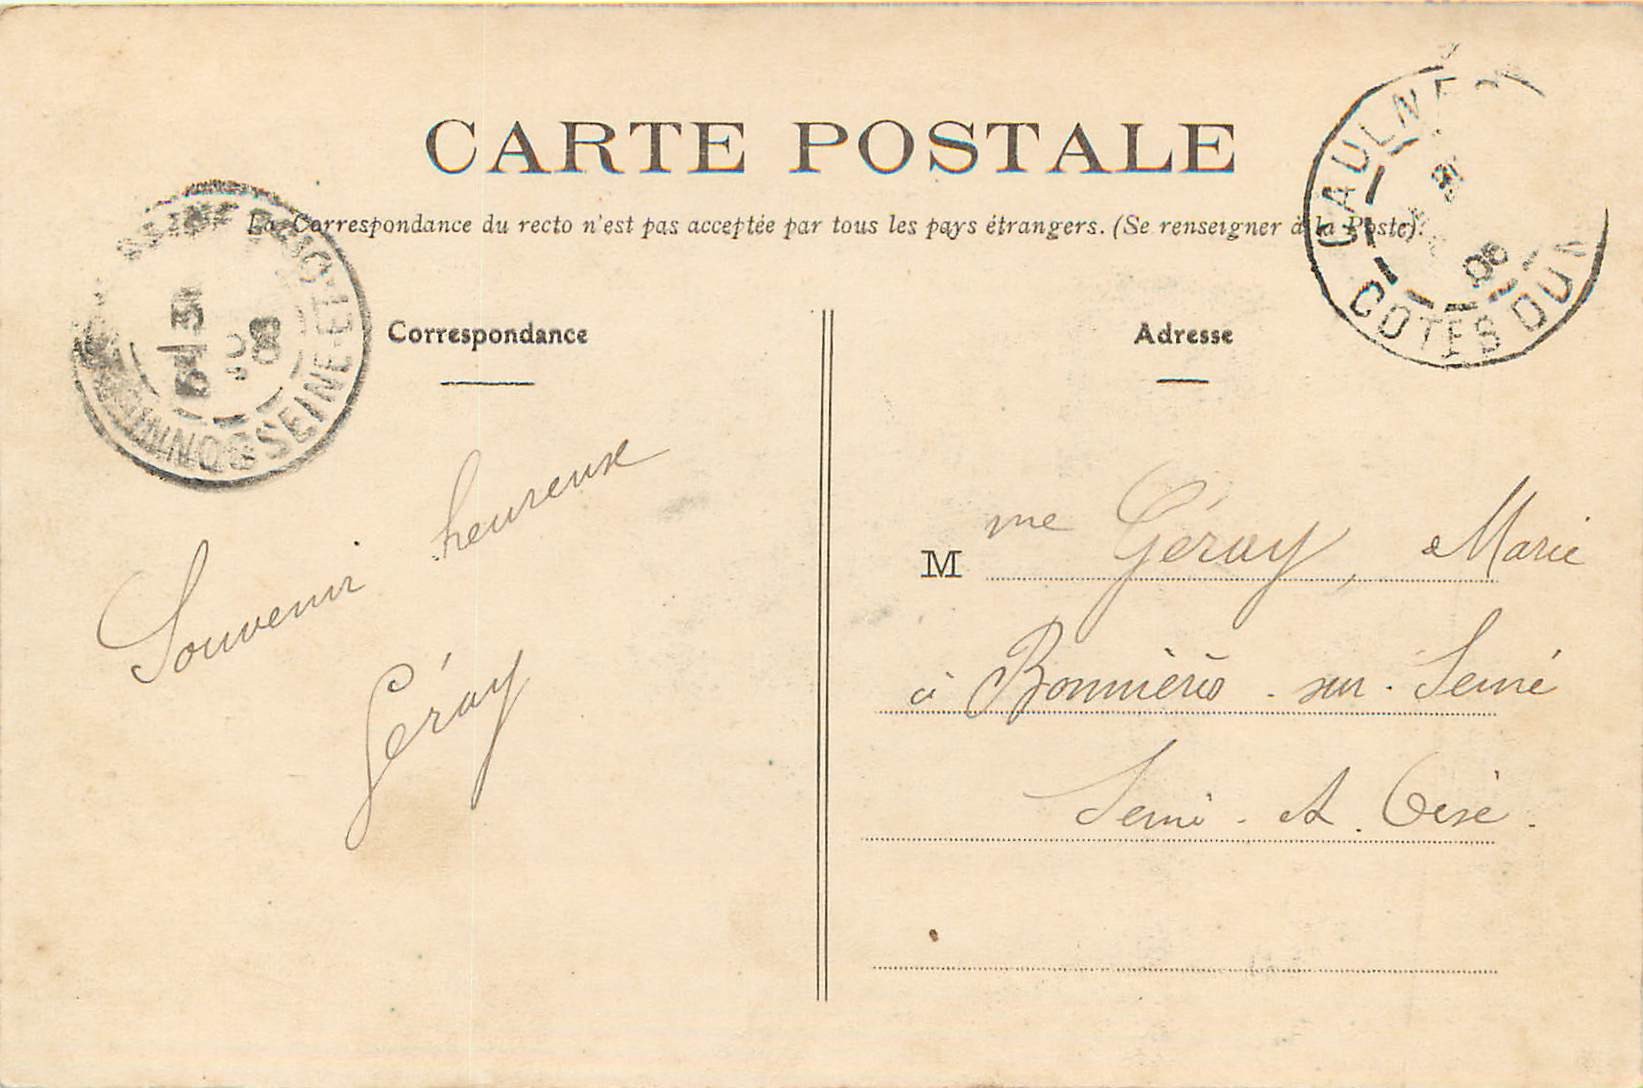 CARTE POSTALE
La Correspondance du recto n'est pas acceptée par tous les pays étrangers. (Se renseigner à la Poste).
Correspondance
Souvenir heureuse
Géray
Adresse
Mme Géray, Marie
à Bonnières-sur-Seine
Seine-et-Oise.
CAULNE
08
COTES DU
SEINE-ET-OISE
08